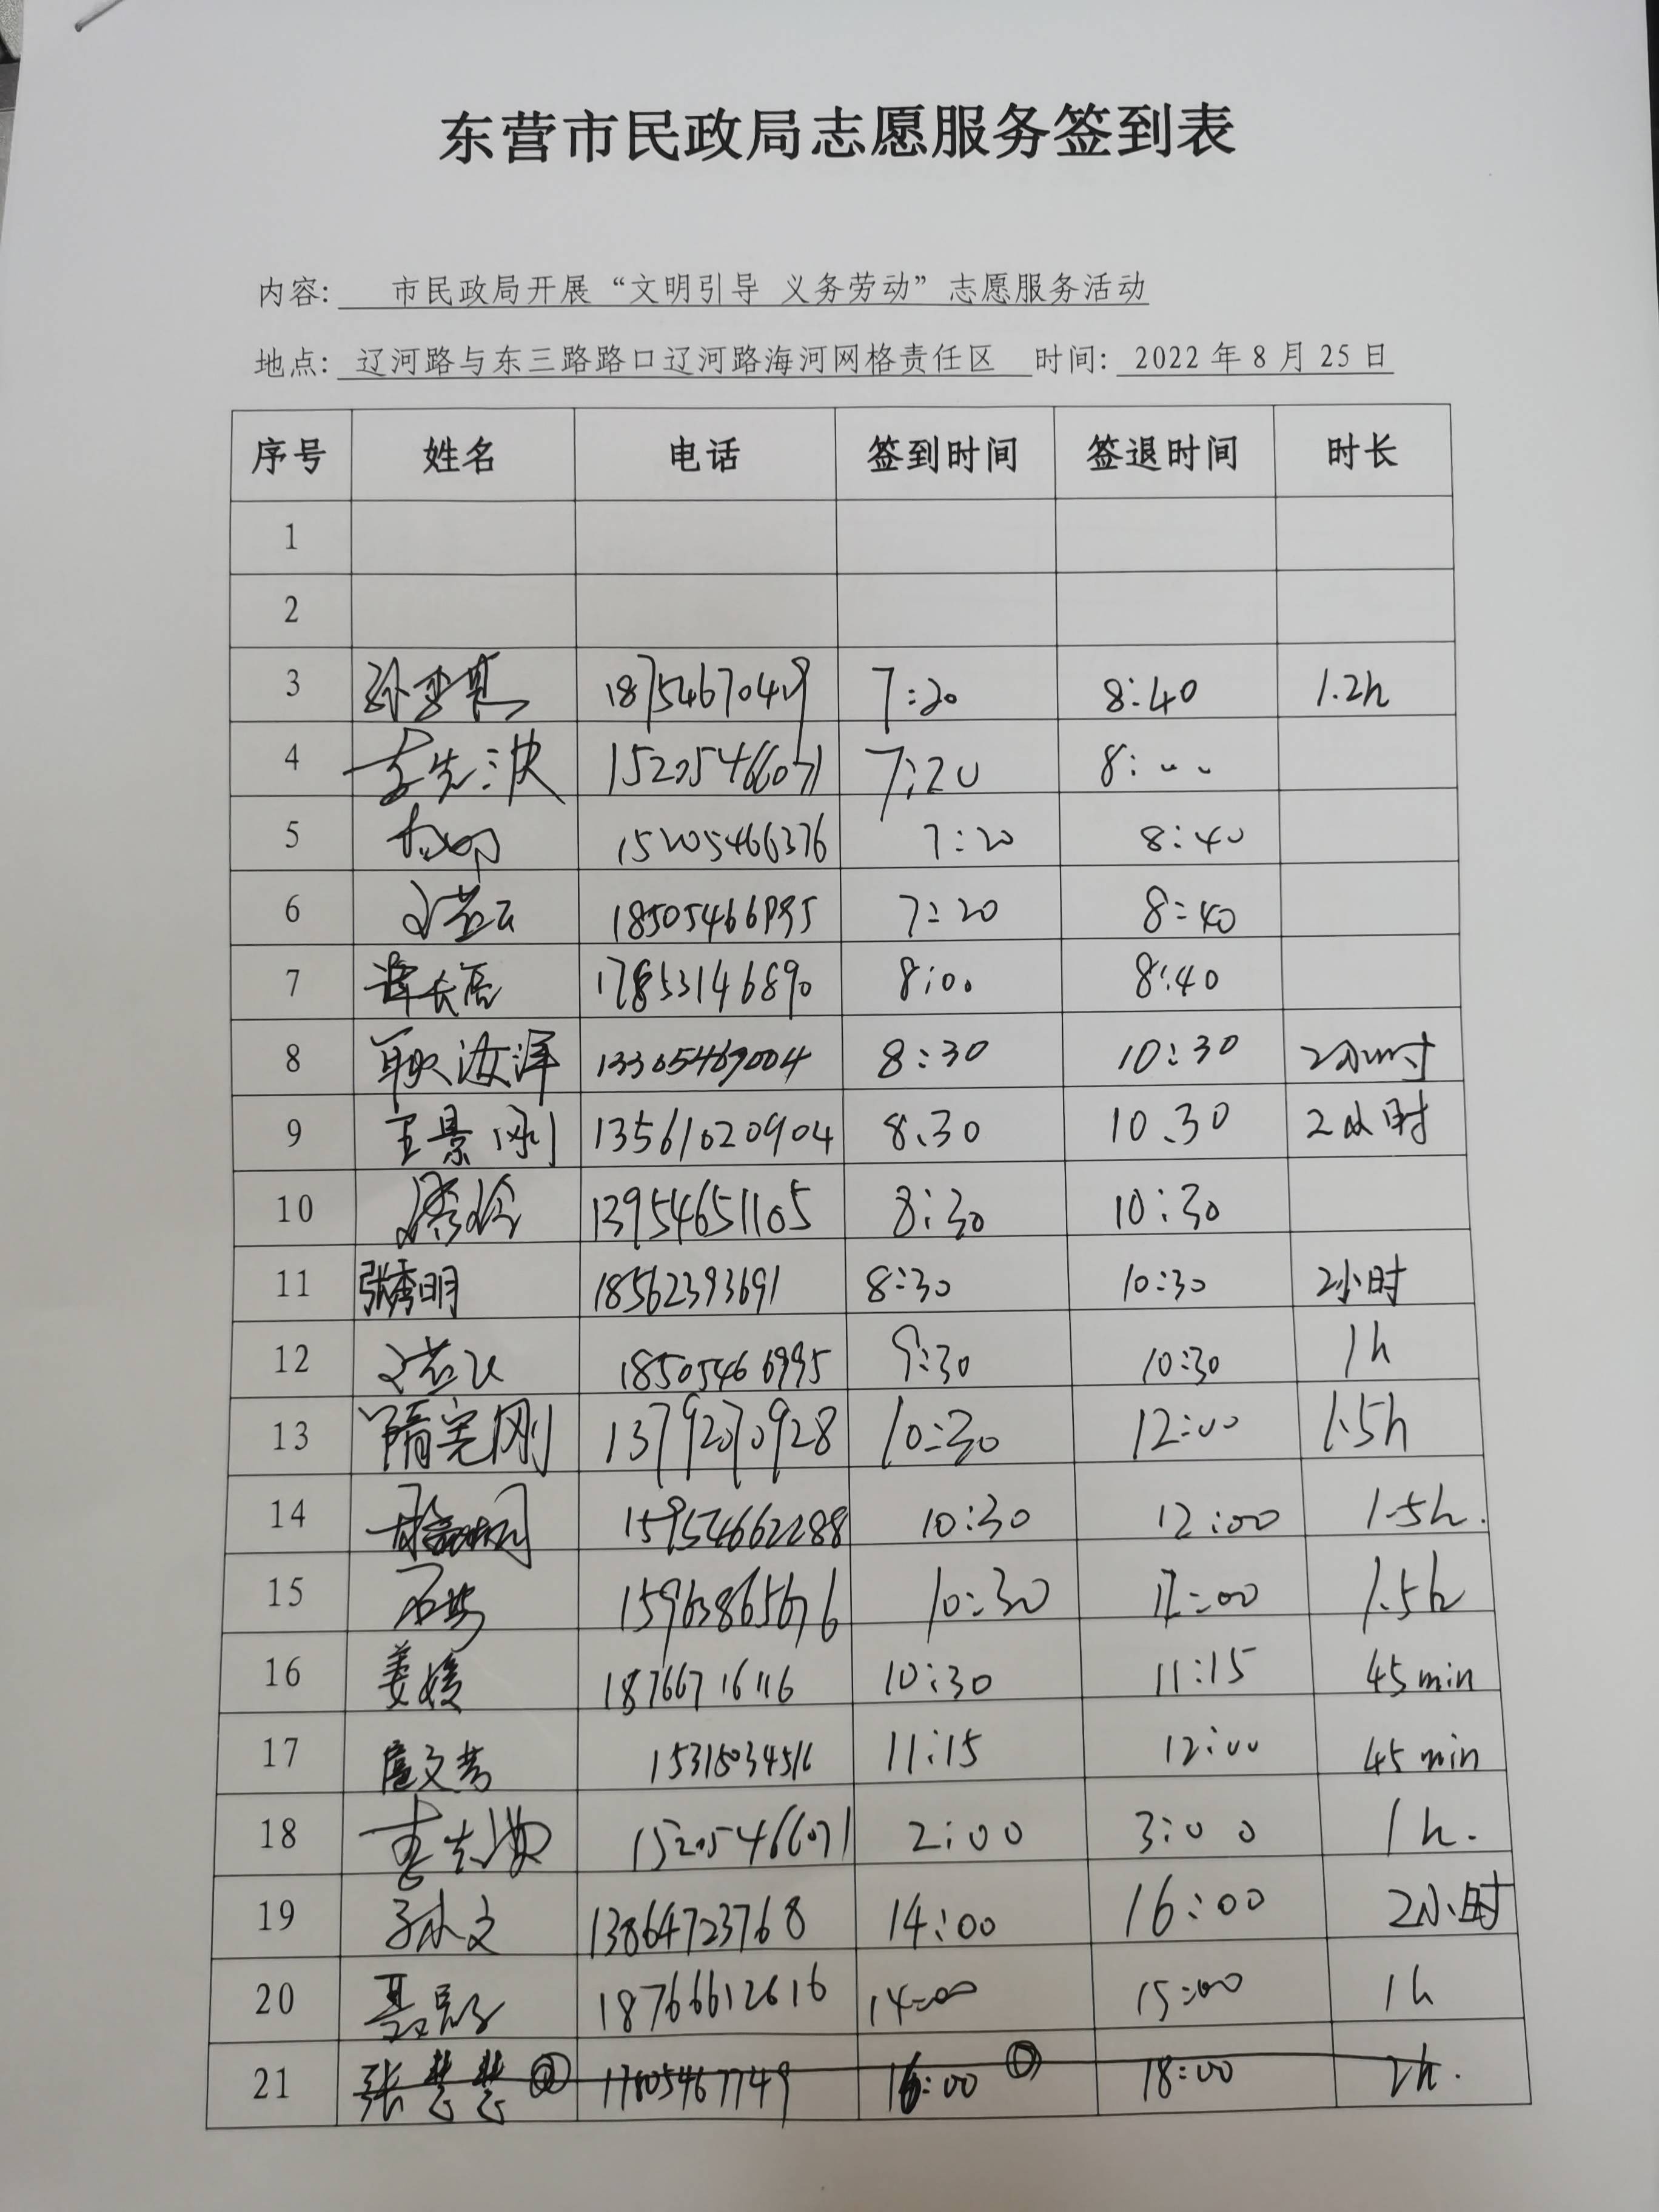 东营市民政局志愿服务签到表
内容: 市民政局开展“文明引导 义务劳动”志愿服务活动
地点: 辽河路与东三路路口辽河路海河网格责任区 时间: 2022年8月25日
序号 姓名 电话 签到时间 签退时间 时长
1
2
3 7:20 8:40 1.2h
4 李先波 15205466071 7:20
5 15205466376 7:20 8:40
6 18505466995 7:20 8:40
7 17853146890 8:00 8:40
8 耿汝洋 13305469004 8:30 10:30 2小时
9 王景刚 13561020904 8.30 10.30 2小时
10 13954651105 8:30 10:30
11 张秀明 18562393691 8:30 10:30 2小时
12 18505466995 9:30 10:30 1h
13 隋宪刚 13792070928 10:30 12:00 1.5h
14 15954662288 10:30 12:00 1.5h.
15 15963865676 10:30 12:00 1.5h
16 姜媛 18766716116 10:30 11:15 45min
17 扈文芳 15315034516 11:15 12:00 45min
18 李先波 15205466071 2:00 3:00 1h.
19 孙文 13864723768 14:00 16:00 2小时
20 18766612616 14:00 15:00 1h
21 张慧慧 17805467749 16:00 18:00 2h.